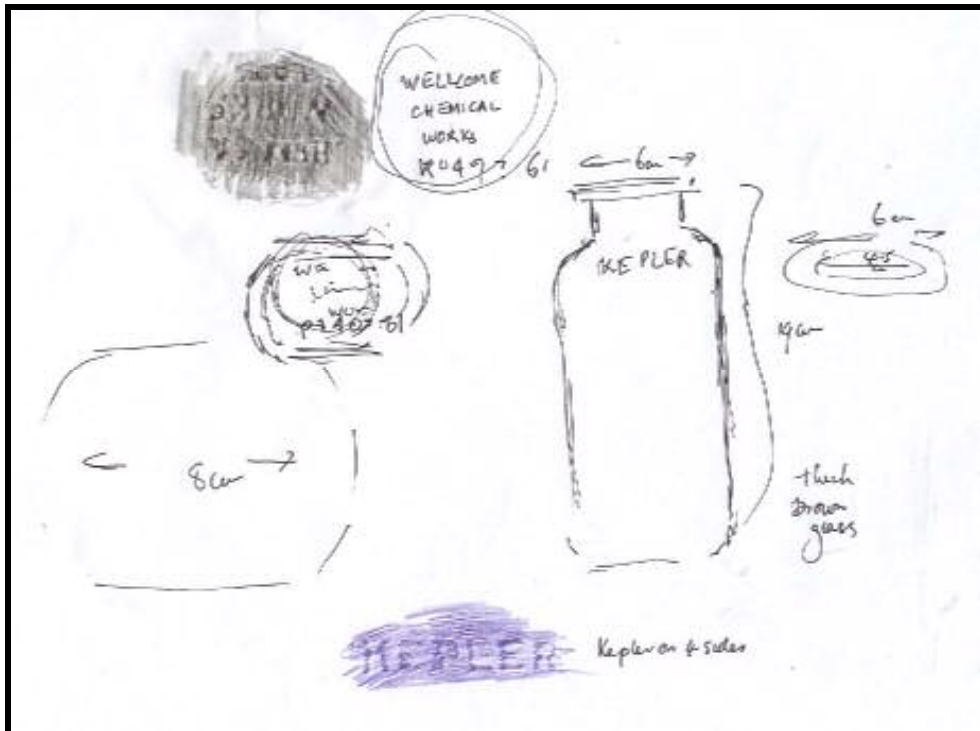 WELLCOME
CHEMICAL
WORKS
6cm
6cm
KEPLER
4.5
19cm
8cm
thick
brown
glass
KEPLER
Kepler on 4 sides